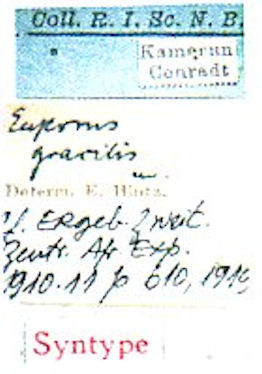 Coll. R. I. Sc. N. B.
Kamerun
Conradt
Euporus
gracilis
Determ. E. Hintz.
cf. Ergeb. Zweit.
Zentr. Afr. Exp.
1910-11 p 610, 1919
Syntype